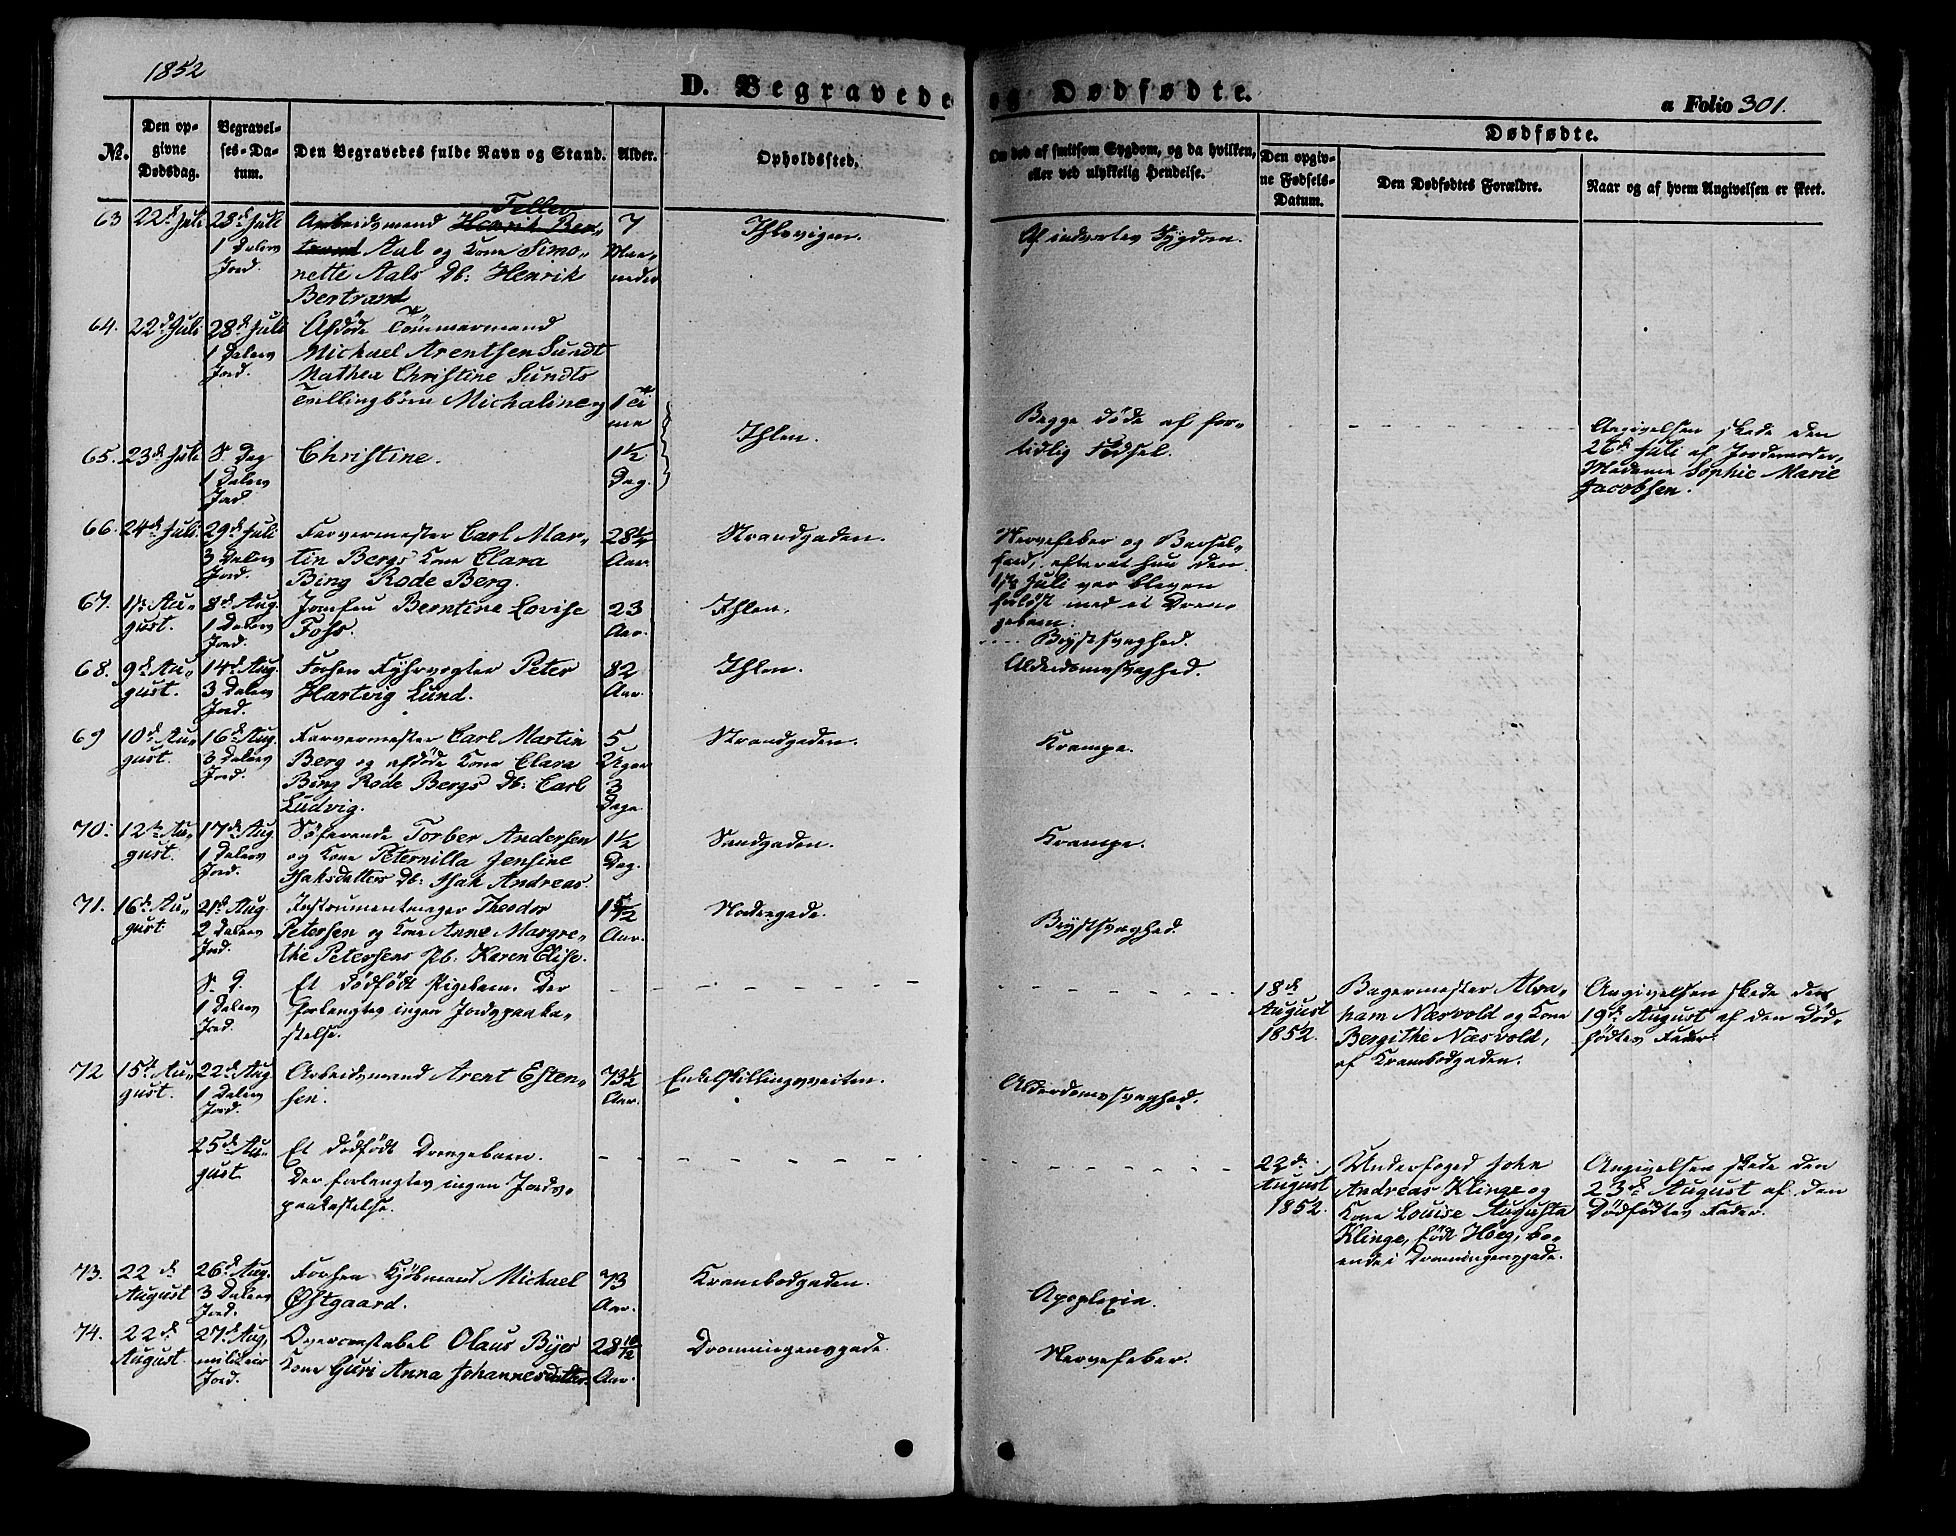 1852
D. Begravede og Dødfødte.
a Folio 301.
No.
Den op-
givne
Dødsdag.
Begravel-
ses-Da-
tum.
Den Begravedes fulde Navn og Stand.
Alder.
Opholdssted.
Om død af smitsom Sygdom, og da hvilken,
eller ved ulykkelig Hendelse.
Dødfødte.
Den opgiv-
ne Fødsels-
Datum.
Den Dødfødtes Forældre.
Naar og af hvem Angivelsen er skeet.
63 22d Juli 28d Juli
1 Dalers
Jord.
Teller
Arbeidsmand Henrik Ber-
trand Aal og Kone Simo-
nette Aals Db: Henrik
Bertrand
7
Maa-
neder
Ihlevigen.
Af indvortes Sygdom.
64. 22d Juli 28d Juli
1 Dalers
Jord.
Afdøde Tømmermand
Michael Arentsen Sundt
Mathea Christine Sundts
Tvillingbørn Michaline og
1 Ti
me
65. 23d Juli S. Dag
1 Dalers
Jord
Christine.
1½
Dag.
Ihlen.
Begge døde af for-
tidlig Fødsel.
Angivelsen skede den
26d Juli af Jordemoder,
Madame Sophie Marie
Jacobsen.
66. 24d Juli. 29d Juli
3 Dalers
Jord.
Farvermester Carl Mar-
tin Bergs Kone Clara
Bing Rode Berg.
28½
Aar.
Strandgaden.
Nervefeber og Barsel-
seng, efterat hun den
17d Juli var bleven
forløst med et Dren-
gebarn.
67. 1ste Au-
gust.
8d Aug.
1 Dalers
Jord.
Jomfru Berntine Lovise
Foss.
23
Aar.
Ihlen.
Brystsvaghed.
68. 9d Au-
gust.
14d Aug.
3 Dalers
Jord.
Forhen Fyhrvogter Peter
Hartvig Lund.
82
Aar.
Ihlen.
Alderdomssvaghed.
69 10d Au-
gust.
16d Aug.
3 Dalers
Jord.
Farvermester Carl Martin
Berg og afdøde Kone Clara
Bing Rode Bergs Db: Carl
Ludvig.
5
Uger
3
Dage
Strandgaden.
Krampe.
70. 12te Au-
gust.
17d Aug
1 Dalers
Jord.
Søfarende Torber Andersen
og Kone Peternilla Jensine
Isaksdatters Db: Isak Andreas.
1½
Dag.
Sandgaden.
Krampe.
71. 16d Au-
gust
21d Aug.
2 Dalers
Jord.
Instrumentmager Theodor
Petersen og Kone Anne Margre-
the Petersens Pb. Karen Elise.
1 5/12
Aar.
Nordregade.
Brystsvaghed.
S. D.
1 Dalers
Jord.
Et dødfødt Pigebarn. Der
forlangtes ingen Jordspaaka-
stelse.
18d
August
1852.
Bagermester Abra-
ham Næsvold og Kone
Bergithe Næsvold,
af Krambodgaden.
Angivelsen skede den
19d August af den Død-
fødtes Fader.
72 15d Au-
gust.
22d Aug
1 Dalers
Jord.
Arbeidsmand Arent Esten-
sen.
73½
Aar.
Enkelskillingsveiten.
Alderdomssvaghed.
25d Au-
gust
Et dødfødt Drengebarn.
Der forlangtes ingen Jords-
paakastelse.
22d
August
1852.
Underfoged John
Andreas Klinge og
Kone Louise Augusta
Klinge, født Høeg, bo-
ende i Dronningensgade.
Angivelsen skede den
23d August af den
Dødfødtes Fader.
73. 22d
August
26d Aug.
3 Dalers
Jord.
Forhen Kjøbmand Michael
Østgaard.
73
Aar.
Krambodgaden.
Apoplexia.
74. 22d
August.
27d Aug,
militair
Jord.
Overconstabel Olaus Byes
Kone Guri Anna Johannesdatter.
28 10/12
Aar.
Dronningensgade.
Nervefeber.